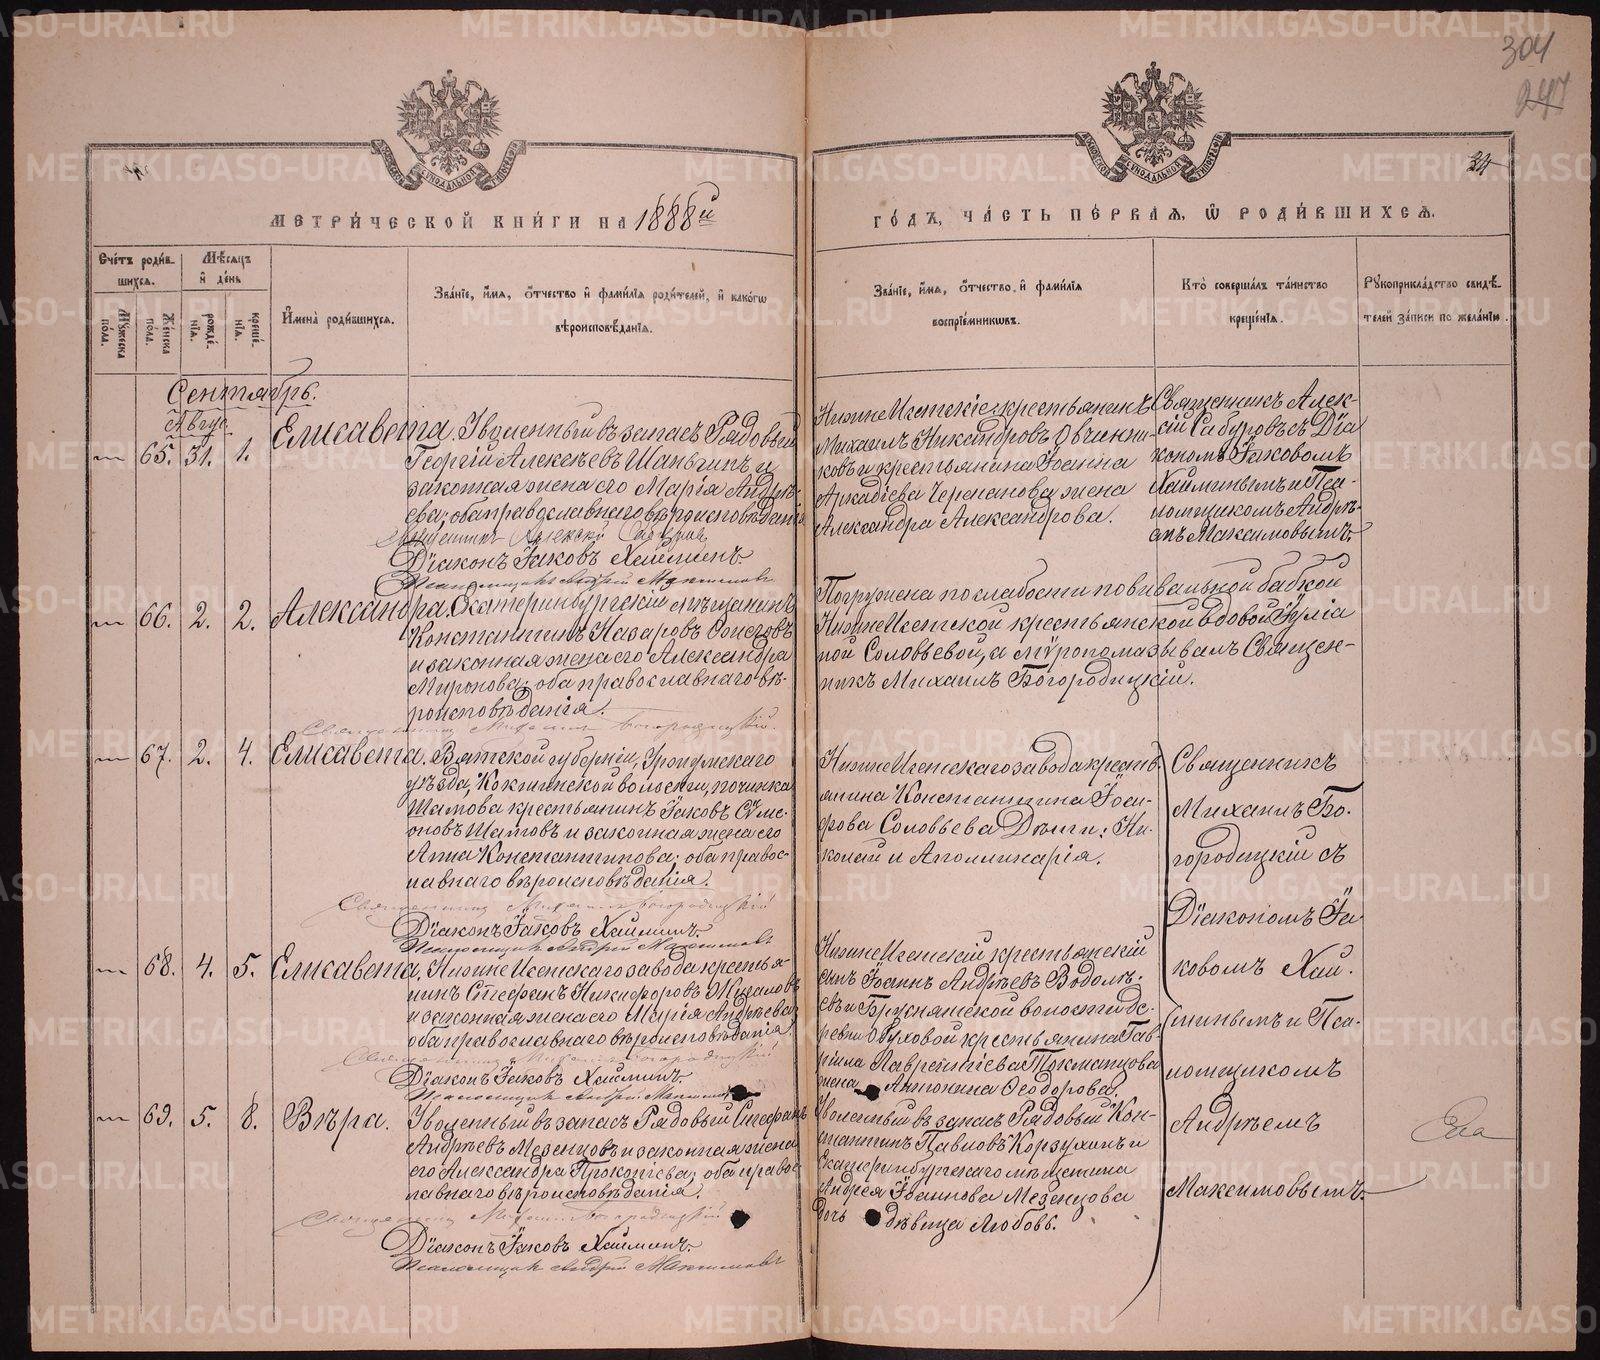 304
247
34
МЕТРИ́ЧЕСКОЙ КНИ́ГИ НА 1888й
ГО́ДЪ, ЧА́СТЬ ПЕ́РВАЯ, Ѿ РОДИ́ВШИХСЯ.
Сче́тъ роди́вшихся.
Мѣ́сяцъ и҆ де́нь
Му́жеска по́ла.
Же́нска по́ла.
рожде́нїя.
креще́нїя.
И҆мена̀ роди́вшихся.
Зва́нїе, и҆́мя, ѻ҆́тчество и҆ фами́лїя роди́телей, и҆ како́гѡ вѣроисповѣ́данїя.
Зва́нїе, и҆́мя, ѻ҆́тчество, и҆ фами́лїя воспрїе́мникѡвъ.
Кто̀ соверша́лъ та́инство креще́нїя.
Рꙋкоприкла́дство свидѣ́телей за́писи по жела́нїю.
Сентябрь.
Авгус.
65. 31. 1.
Елисавета.
Уволенный въ запасъ Рядовый
Георгій Алексѣевъ Шаньгинъ и
законная жена его Марія Андрѣ-
ева; оба православнаго вѣроисповѣданія
Священникъ Алексій Сабуровъ
Діаконъ Іаковъ Хайминъ.
Псаломщикъ Андрей Максимовъ
НижнеИсетскіе крестьянинъ
Михаилъ Никандровъ Овчинни-
ковъ и крестьянина Іоанна
Аркадіева Черепанова жена
Александра Александрова.
Священникъ Алек-
сій Сабуровъ съ Діа
кономъ Іаковомъ
Хайминымъ и Пса-
ломщикомъ Андрѣ-
емъ Максимовымъ.
66. 2. 2.
Александра.
Екатеринбургскій мѣщанинъ
Константинъ Назаровъ
и законная жена его Александра
Миронова; оба православнаго вѣ-
роисповѣданія.
Священникъ Михаилъ Богородицкій.
Погружена по слабости повивальной бабкой
НижнеИсетской крестьянской вдовой Іуліа
ной Соловьевой, а мѵропомазывалъ Священ-
никъ Михаилъ Богородицкій.
67. 2. 4.
Елисавета.
Вятской губерніи, Уржумскаго
уѣзда, Кокшинской волости, починка
Шатова крестьянинъ Іаковъ Сѵме-
оновъ Шатовъ и законная жена его
Анна Константинова; оба правос-
лавнаго вѣроисповѣданія.
Священникъ Михаилъ Богородицкій
Діаконъ Іаковъ Хайминъ.
Псаломщикъ Андрей Максимовъ
НижнеИсетскаго завода кресть
янина Константина Іоси-
фова Соловьева Дѣти: Ни-
колай и Аполлинарія.
Священникъ
Михаилъ Бо-
городицкій съ
Діакономъ Іа
ковомъ Хай-
минымъ и Пса-
ломщикомъ
Андрѣемъ
Максимовымъ.
68. 4. 5.
Елисавета.
НижнеИсетскаго завода крестья-
нинъ Стефанъ Никифоровъ
и законная жена его Марія Андрѣева;
оба православнаго вѣроисповѣданія
Священникъ Михаилъ Богородицкій
Діаконъ Іаковъ Хайминъ.
Псаломщикъ Андрей Максимовъ
НижнеИсетскій крестьянскій
сынъ Іоаннъ Андрѣевъ Водолѣ-
евъ и Бруснянской волости де-
ревни Обуховой крестьянина Гав-
ріила Лаврентіева Токманцова
жена Антонина Ѳеодорова.
69. 5. 8.
Вѣра.
Уволенный въ запасъ Рядовый Стефанъ
Андрѣевъ Мезенцовъ и законная жена
его Александра Прокопіева; оба правос-
лавнаго вѣроисповѣданія.
Священникъ Михаилъ Богородицкій
Діаконъ Іаковъ Хайминъ.
Псаломщикъ Андрей Максимовъ
Уволенный въ запасъ Рядовый Кон-
стантинъ Павловъ Корзухинъ и
Екатеринбургскаго мѣщанина
Андрея Іоаннова Мезенцова
дочь дѣвица Любовь.
METRIKI.GASO-URAL.RU